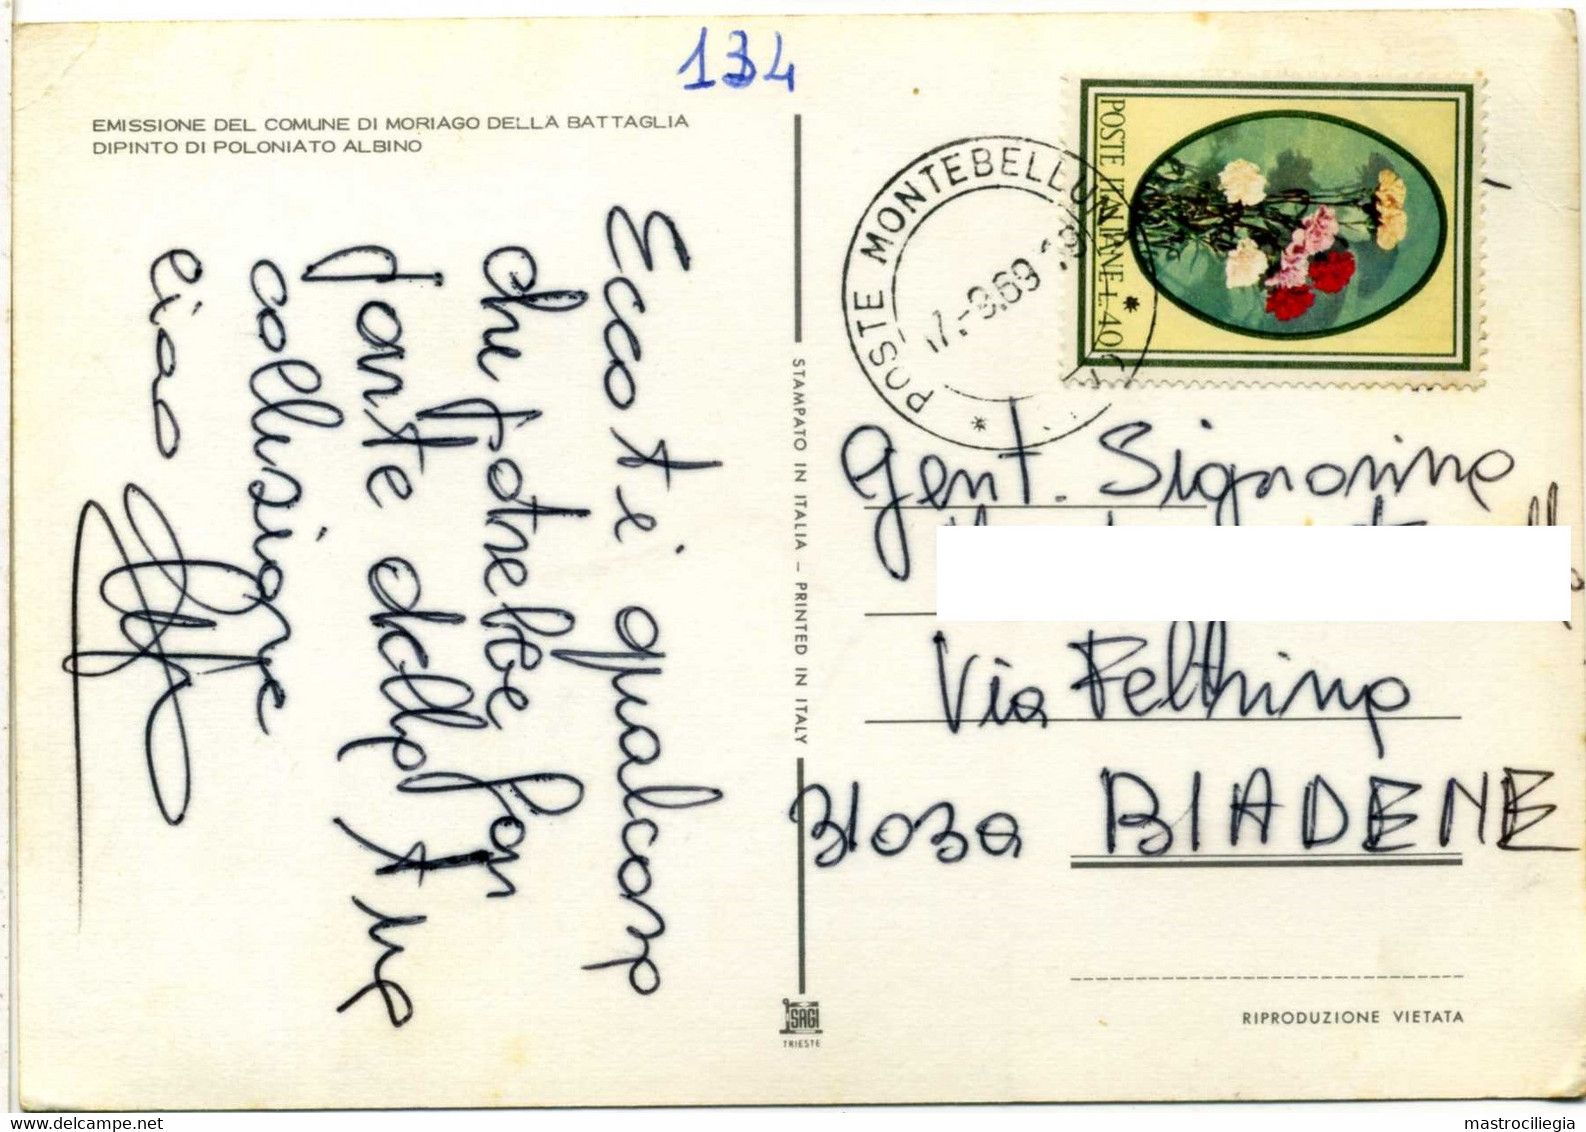 134
EMISSIONE DEL COMUNE DI MORIAGO DELLA BATTAGLIA
DIPINTO DI POLONIATO ALBINO
Ecco ti qualcosa
che potrebbe far
parte della tua
collusione
ciao
STAMPATO IN ITALIA – PRINTED IN ITALY
SAGI
TRIESTE
POSTE MONTEBELLUNA
17.-9.69
POSTE ITALIANE L.40
Gent. Signorina
Via Feltrina
31030 BIADENE
RIPRODUZIONE VIETATA
www.delcampe.net
mastrociliegia